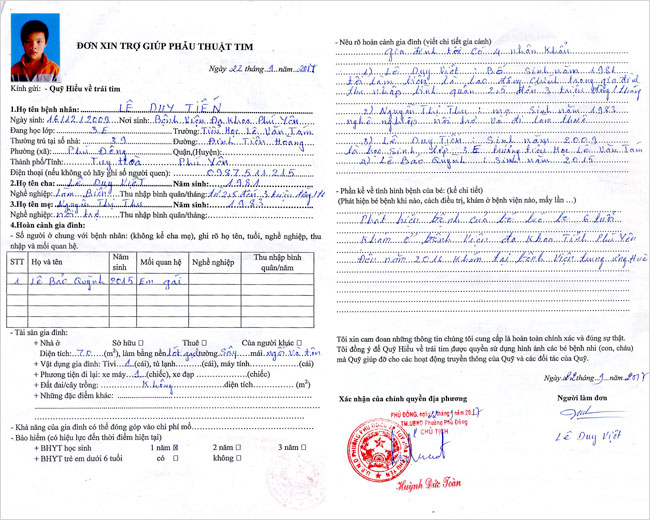 ĐƠN XIN TRỢ GIÚP PHẪU THUẬT TIM
Ngày 22 tháng 9 năm 2017
Kính gửi: - Quỹ Hiểu về trái tim
1.Họ tên bệnh nhân: LÊ DUY TIẾN
Ngày sinh: 16.12.2009 Nơi sinh: Bệnh Viện Đa Khoa Phú Yên
Đang học lớp: 3E Trường: Tiểu Học Lê Văn Tám
Thường trú tại số nhà: 29 Đường: Đinh Tiên Hoàng
Phường (xã): Phú Đông Quận,(Huyện):
Thành phố/Tỉnh: Tuy Hoà Phú Yên
Điện thoại (nếu không có hãy ghi số người quen): 0987511215
2.Họ tên cha: Lê Duy Việt Năm sinh: 1981
Nghề nghiệp: Làm Biển Thu nhập bình quân/tháng: từ 2,5 đến 3 triệu đồng/tháng
3.Họ tên mẹ: Nguyễn Thị Thu Năm sinh: 1983
Nghề nghiệp: nội trợ Thu nhập bình quân/tháng:
4.Hoàn cảnh gia đình:
- Số người ở chung với bệnh nhân: (không kể cha mẹ), ghi rõ họ tên, tuổi, nghề nghiệp, thu
nhập và mối quan hệ.
STT Họ và tên Năm sinh Mối quan hệ Nghề nghiệp Thu nhập bình quân/năm
1 Lê Bảo Quỳnh 2015 Em gái
- Tài sản gia đình:
+ Nhà ở Sở hữu Thuê Của người khác
Diện tích: 70 (m²), làm bằng nền lót gạch tường Xây mái Ngói Và tôn
+ Vật dụng gia đình: Tivi 1 (cái), tủ lạnh (cái), máy tính (cái)
+ Phương tiện đi lại: xe máy 1 (chiếc), xe đạp (chiếc)
+ Đất đai/cây trồng: Không diện tích (m²)
+ Những đặc điểm khác:
- Khả năng của gia đình có thể đóng góp vào chi phí mổ
- Bảo hiểm (có hiệu lực đến thời điểm hiện tại)
+ BHYT học sinh 1 năm 2 năm 3 năm
+ BHYT trẻ em dưới 6 tuổi có không
- Nêu rõ hoàn cảnh gia đình (viết chi tiết gia cảnh)
Gia đình tôi có 4 nhân khẩu
1) Lê Duy Việt: Bố Sinh năm 1981
tôi làm biển là lao động chính trong gia đình
thu nhập bình quân 2,5 đến 3 triệu đồng/tháng
2) Nguyễn Thị Thu: mẹ Sinh năm 1983
nghề nghiệp nội trợ và đi làm thuê
3) Lê Duy Tiến Sinh năm 2009
là học Sinh lớp 3E trường tiểu Học Lê Văn Tám
4) Lê Bảo Quỳnh: Sinh năm 2015
- Phần kể về tình hình bệnh của bé: (kể chi tiết)
(Phát hiện bệnh khi nào, cách điều trị, khám ở bệnh viện nào, mấy lần ...)
Phát hiện bệnh của bé lúc bé 6 tuổi
Khám ở Bệnh Viện đa Khoa Tỉnh Phú Yên
Đến năm 2016 Khám tại Bệnh Viện trung ương Huế
Tôi xin cam đoan những thông tin chúng tôi cung cấp là hoàn toàn chính xác và đúng sự thật.
Tôi đồng ý để Quỹ Hiểu về trái tim được quyền sử dụng hình ảnh các bệnh nhi (con, cháu)
mà Quỹ giúp đỡ cho các hoạt động truyền thông của Quỹ và các đối tác của Quỹ.
Ngày 22 tháng 9 năm 2017
Xác nhận của chính quyền địa phương Người làm đơn
PHÚ ĐÔNG, ngày 22 tháng 9 năm 2017
TM.UBND Phường Phú Đông
CHỦ TỊCH
Lê Duy Việt
Huỳnh Đức Toàn